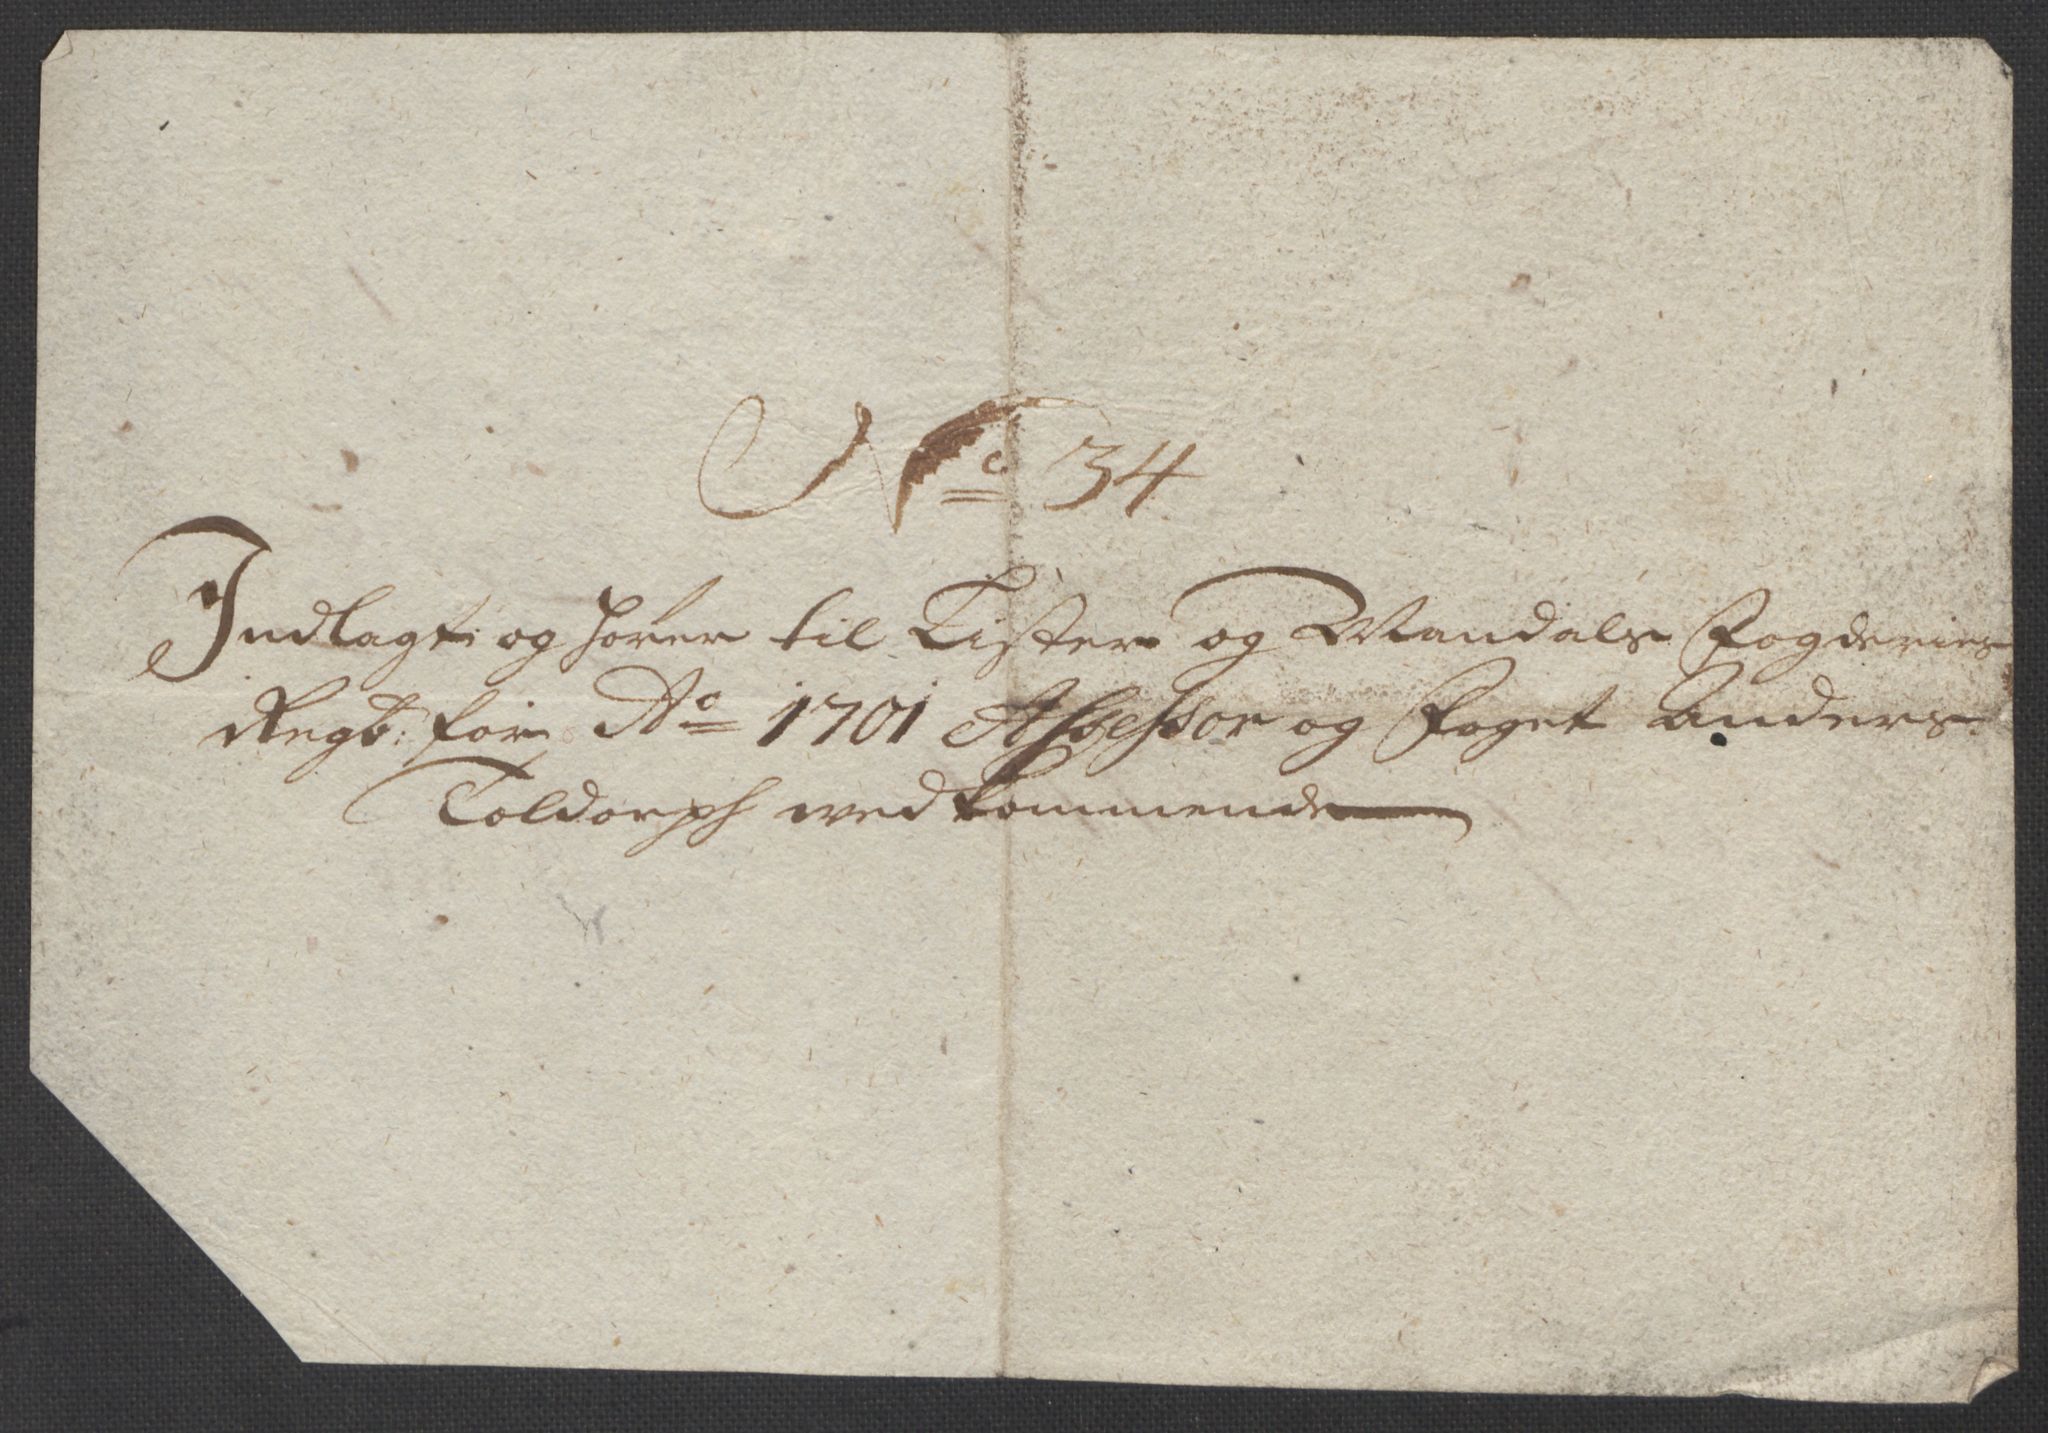 No 34
Indlagt og hörer til Lister og Mandals Fogderies
Regb: for Ao 1701 Assessor og Foget Anders
Toldorph vedkommende